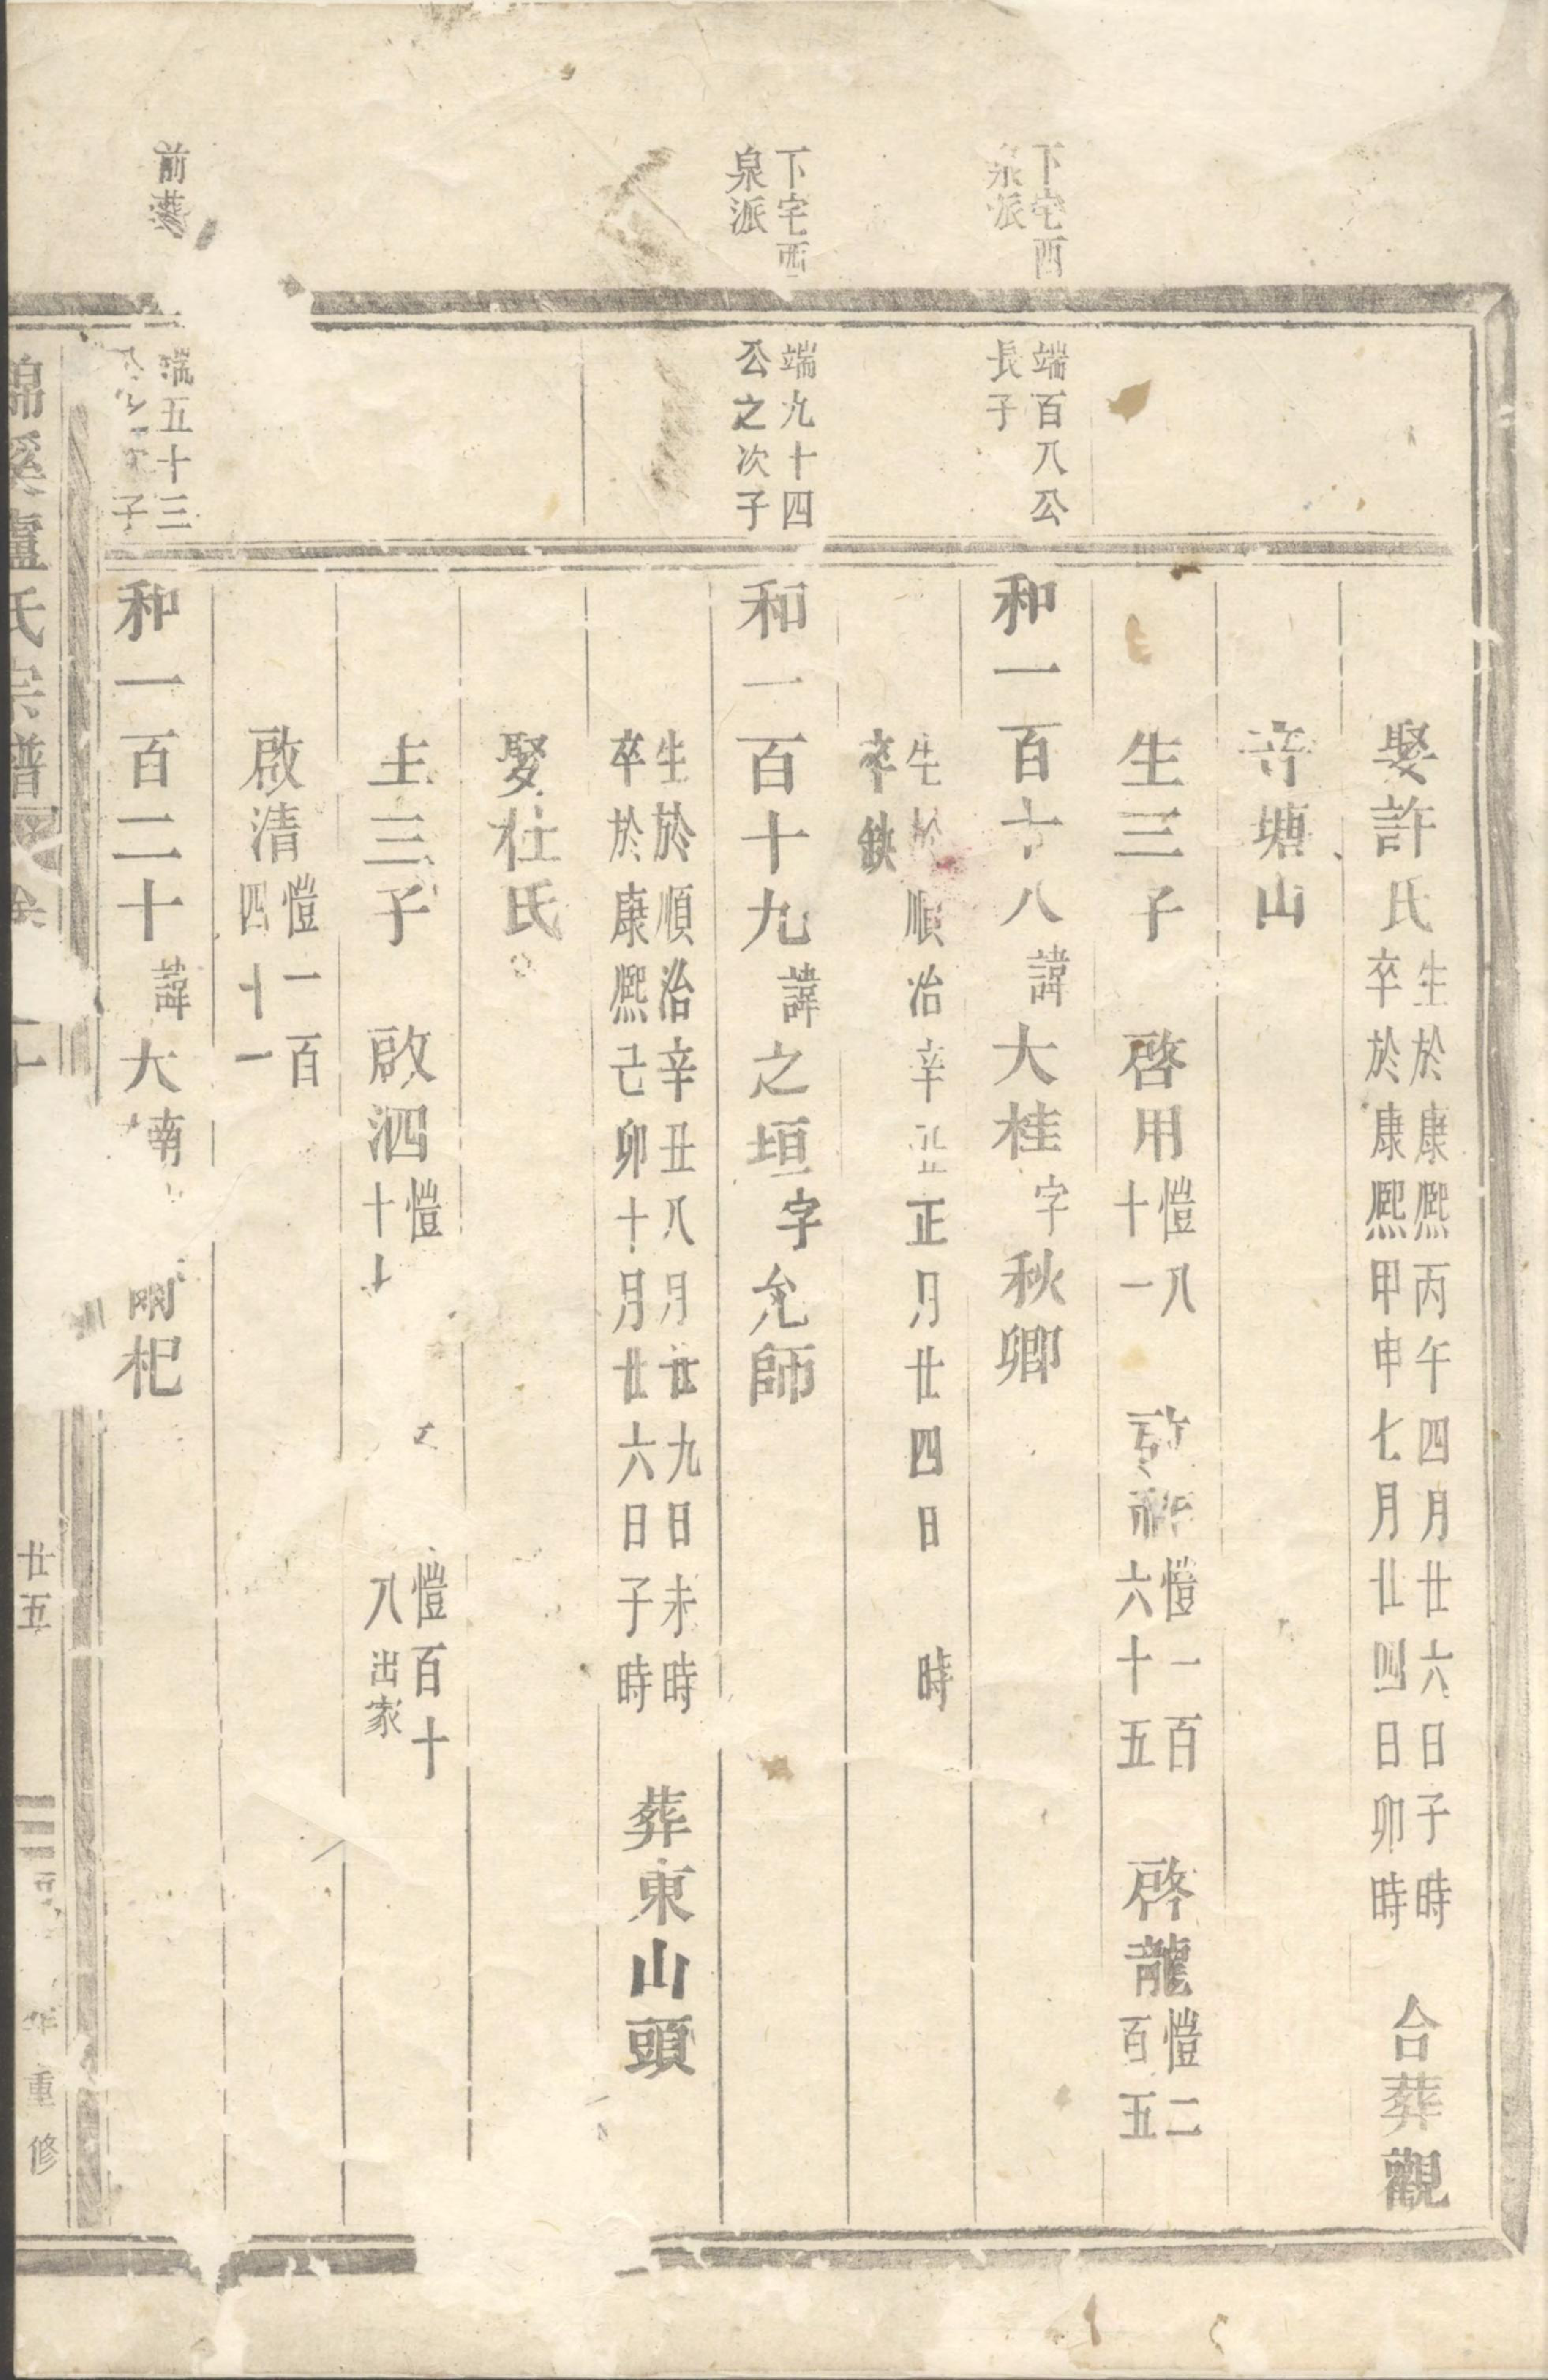 娶許氏
生於康熙丙午四月廿六日子時
卒於康熙甲申七月廿四日卯時
合葬觀
寺塘山
生三子 啓用
愷八
十一
愷一百
六十五
啓龍
愷二
百五
下宅西
泉派
端百八公
長子
和一百十八諱大桂字秋卿
生於順治辛丑正月廿四日 時
卒缺
下宅西
泉派
端九十四
公之次子
和一百十九諱之垣字允師
生於順治辛丑八月廿九日未時
卒於康熙己卯十月廿六日子時
葬東山頭
娶杜氏
生三子 啟泗
愷
十
愷百十
八出家
啟清
愷一百
四十一
前
端五十三
子
和一百二十諱大南 杞
錦溪盧氏宗譜
廿五
年重修